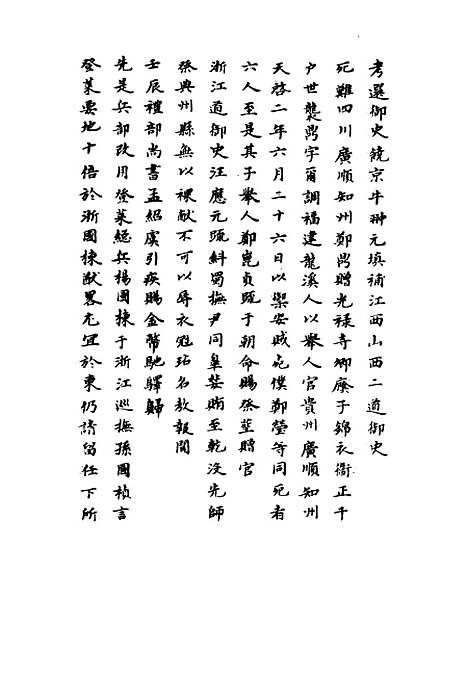 考選御史饒京牛翀元填補江西山西二道御史
死難四川廣順知州鄭鼎贈光祿寺卿廕子錦衣衞正千
戶世襲鼎字爾調福建龍溪人以舉人官貴州廣順知州
天啓二年六月二十六日以禦安賊死僕鄭瑩等同死者
六人至是其子舉人鄭崑貞疏于朝命賜祭塟贈官
浙江道御史汪應元疏糾蜀撫尹同臯婪賄至乾沒先師
祭典州縣無以祼獻不可以辱衣冠玷名教報聞
壬辰禮部尚書孟紹虞引疾賜金幣馳驛歸
先是兵部改用登萊總兵楊國棟于浙江巡撫孫國楨言
登萊要地十倍於浙國棟猷畧尤宜於東仍請留任下所